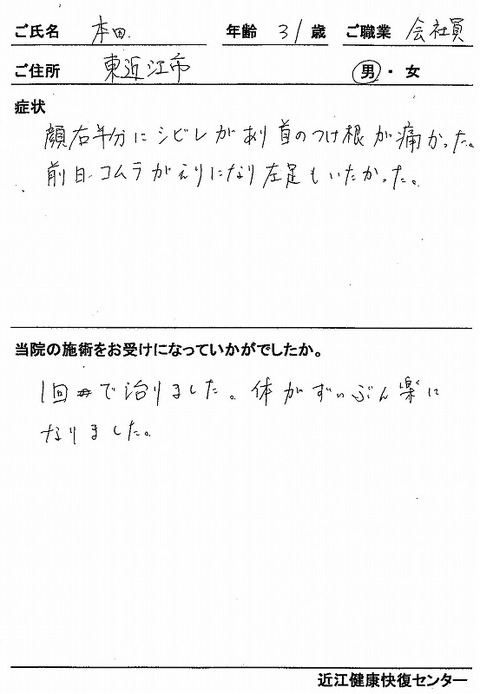 ご氏名 本田 年齢 31 歳 ご職業 会社員
ご住所 東近江市 男・女
症状
顔右半分にシビレがあり首のつけ根が痛かった。
前日コムラがえりになり左足もいたかった。
当院の施術をお受けになっていかがでしたか。
1回で治りました。体がずいぶん楽に
なりました。
近江健康快復センター